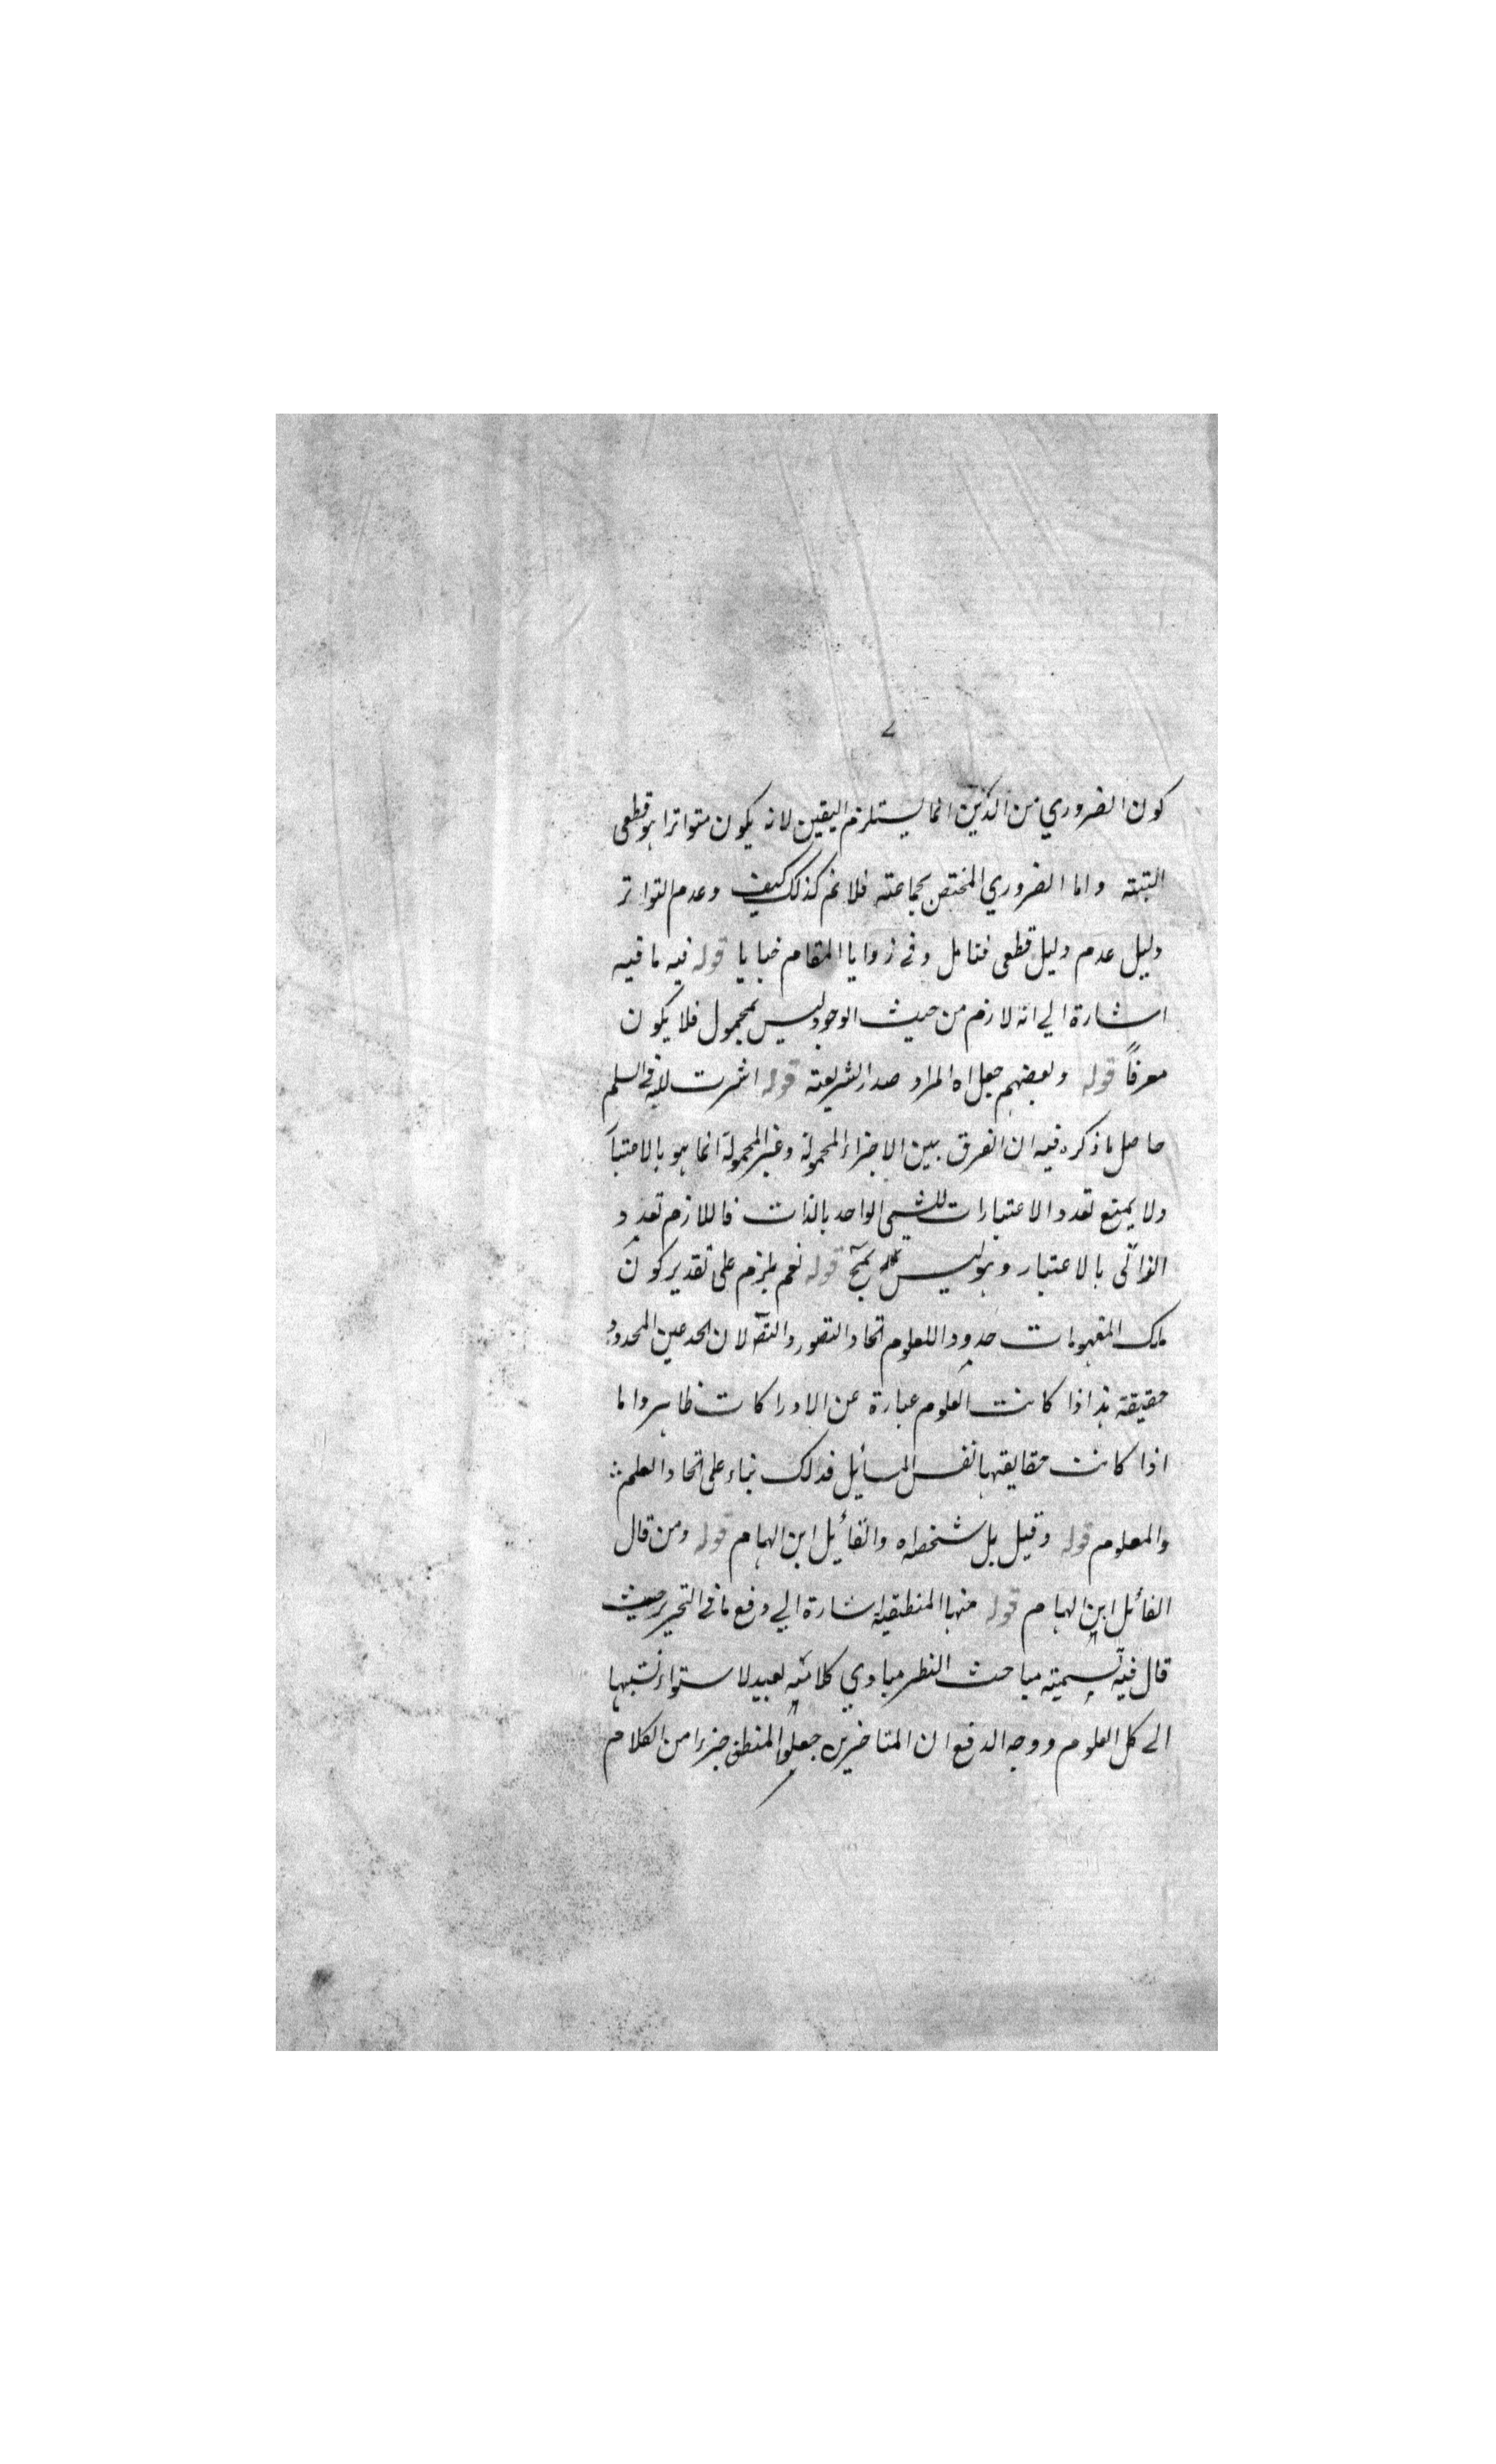 كون الضروري من الدين انما يستلزم اليقين لانه يكون متواترا هو قطعي
البتته واما الضروري المختص بجماعته فلا نم كذلك كيف وعدم التواتر
دليل عدم دليل قطعي فتامل وفي زوايا المقام خبايا قوله فيه ما فيه
اشارة الي انه لازم من حيث الوجود ليس بمحمول فلا يكون
معرفاً قوله وبعضهم جعل اه المراد صدر الشريعته قوله اشرت اليه في السلم
حاصل ما ذكره فيه ان الفرق بين الاجزاء المحمولة وغير المحمولة انما هو بالاعتبا
ولا يمتنع تعدد الاعتبارات للشيء الواحد بالذات فاللازم تعدد
الذاتي بالاعتبار وهو ليس بمح قوله نعم يلزم على تقدير كون
تلك المفهومات حدودا للعلوم اتحاد التصور والتصـ لان الحد عين المحدود
حقيقة هذا اذا كانت العلوم عبارة عن الادراكات ظاهر واما
اذا كانت حقايقها نفس المسائل فذلك بناء على اتحاد العلم
والمعلوم قوله وقيل بل شخصه اه والقائل ابن الهمام قوله ومن قال
القائل ابن الهمام قوله منها المنطقية اشارة الي دفع ما في التحرير حيث
قال فيه تسميته مباحث النظر مبادي كلاميه بعيد لاستواء نسبتها
الے كل العلوم ووجه الدفع ان المتاخرين جعلوا المنطق جزءا من الكلام